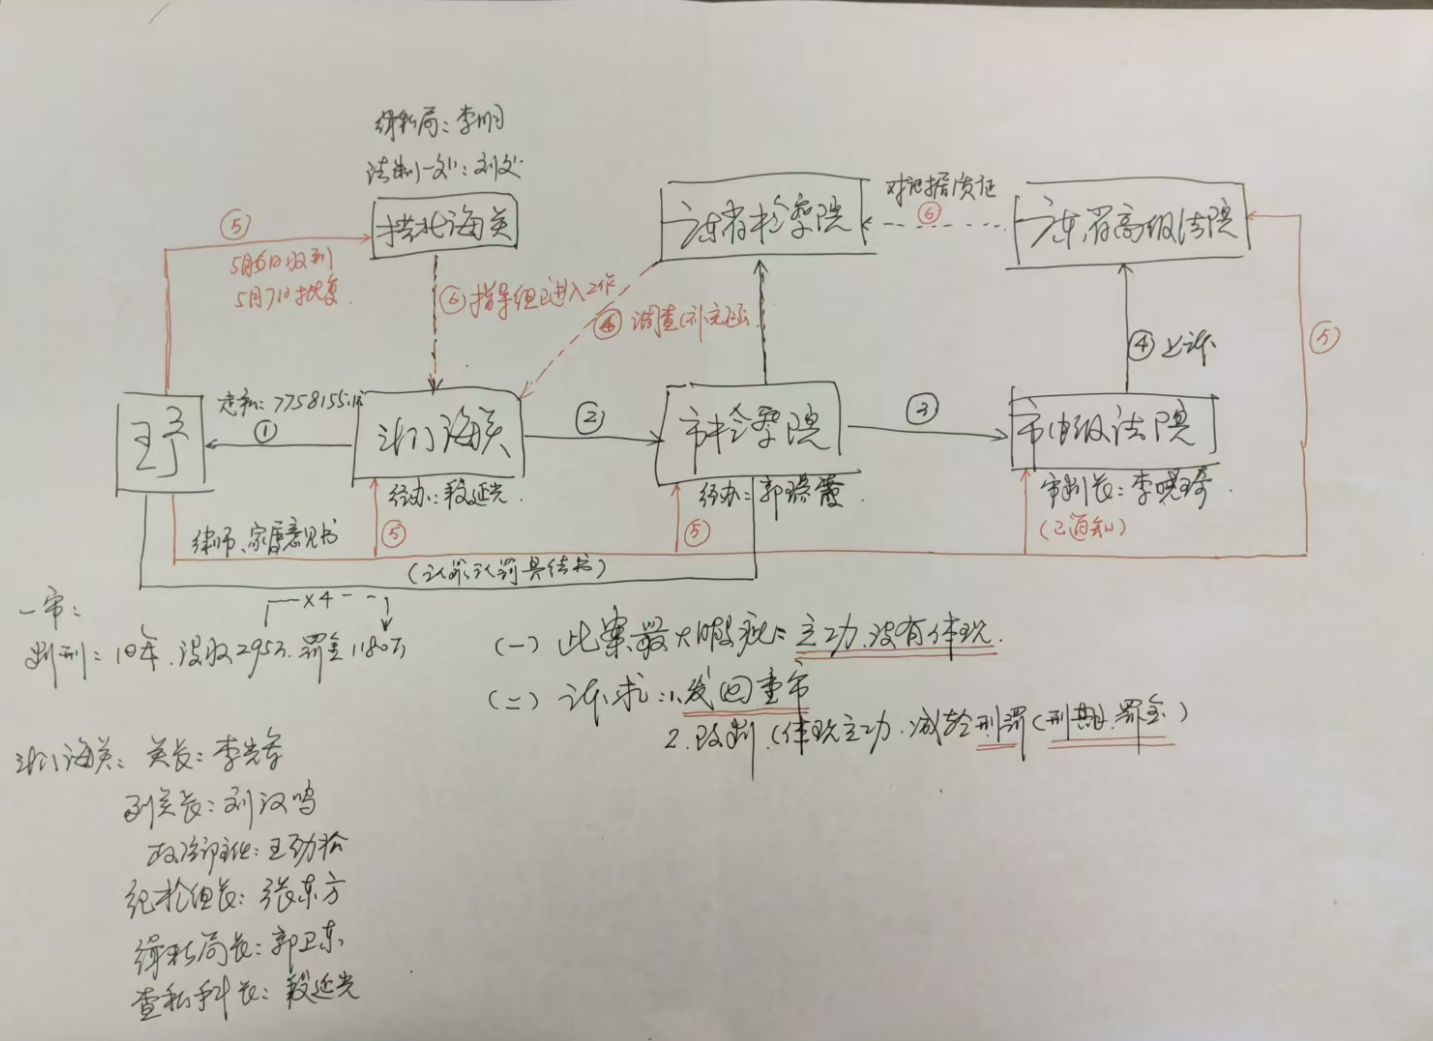 缉私局：李明
法制一处：刘处
拱北海关
广东省检察院
对证据质证
⑥
广东省高级法院
⑤
5月6日收到
5月7日批复
⑥指导组已进入工作
⑥ 调查(补充证)
④上诉
⑤
走私：7758155.
①
王
江门海关
②
市检察院
③
市中级法院
经办：段延光.
经办：郭
审判长：李晓琦.
(已通知)
律师、家属意见书
⑤
⑤
(认罪认罚具结书)
x4
一审：
判刑：10年.没收295万.罚金1180万
(一)此案最大瑕疵：立功.没有体现.
(二)诉求：1.发回重审
2.改判.(体现立功.减轻刑罚(刑期.罚金)
江门海关：关长：李
副关长：刘汉鸣
政治部主任：王劲松
纪检组长：张东方
缉私局长：郭卫东
查私科长：段延光